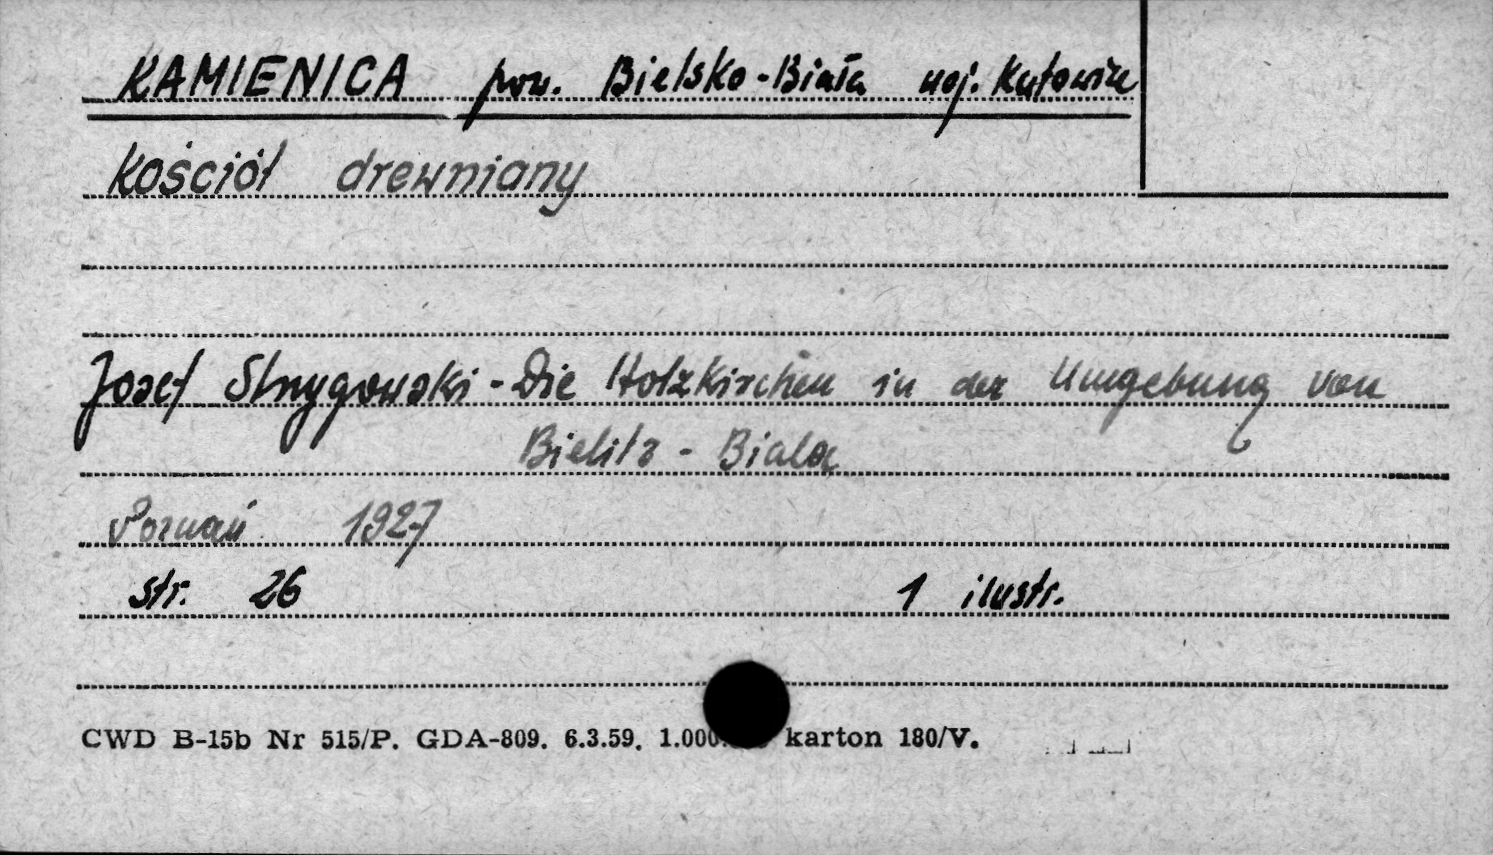 KAMIENICA pow. Bielsko-Biała woj. Katowice
Kościół drewniany
Josef Strzygowski - Die Holzkirchen in der Umgebung von
Bielitz - Biala
Poznań 1927
str. 26 1 ilustr.
CWD B-15b Nr 515/P. GDA-809. 6.3.59. 1.000 karton 180/V.